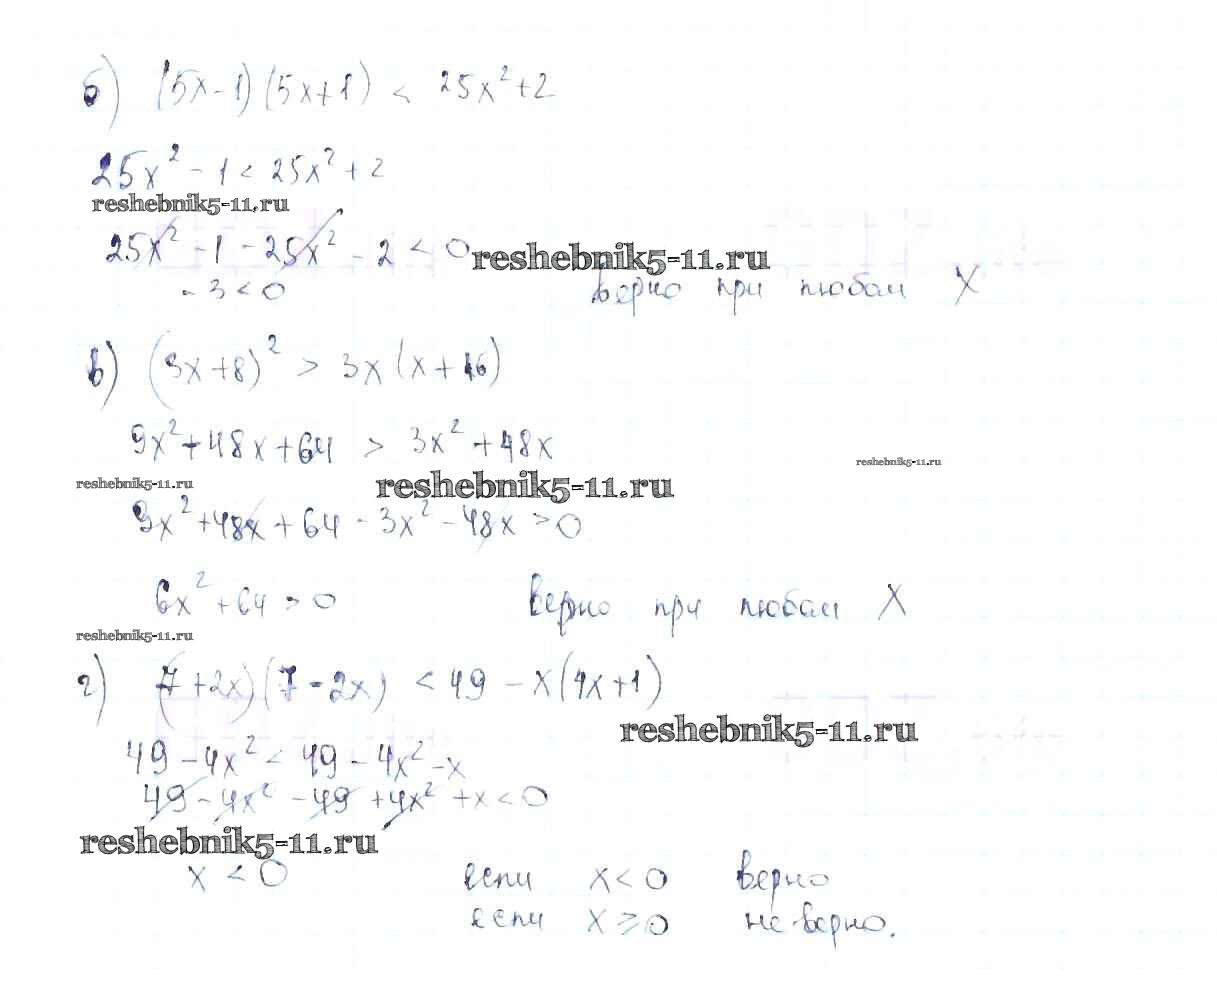 б) (5x-1)(5x+1) < 25x²+2
25x² - 1 < 25x² + 2
reshebnik5-11.ru
25x² - 1 - 25x² - 2 < 0
reshebnik5-11.ru
-3 < 0 верно при любом X
в) (3x+8)² > 3x(x+16)
9x²+48x+64 > 3x²+48x
reshebnik5-11.ru
reshebnik5-11.ru
reshebnik5-11.ru
9x²+48x+64-3x²-48x>0
6x²+64>0 верно при любом X
reshebnik5-11.ru
г) (7+2x)(7-2x) < 49 - x(4x+1)
reshebnik5-11.ru
49-4x² < 49-4x²-x
49-4x²-49+4x²+x<0
reshebnik5-11.ru
x < 0 если x<0 верно
если x≥0 не верно.